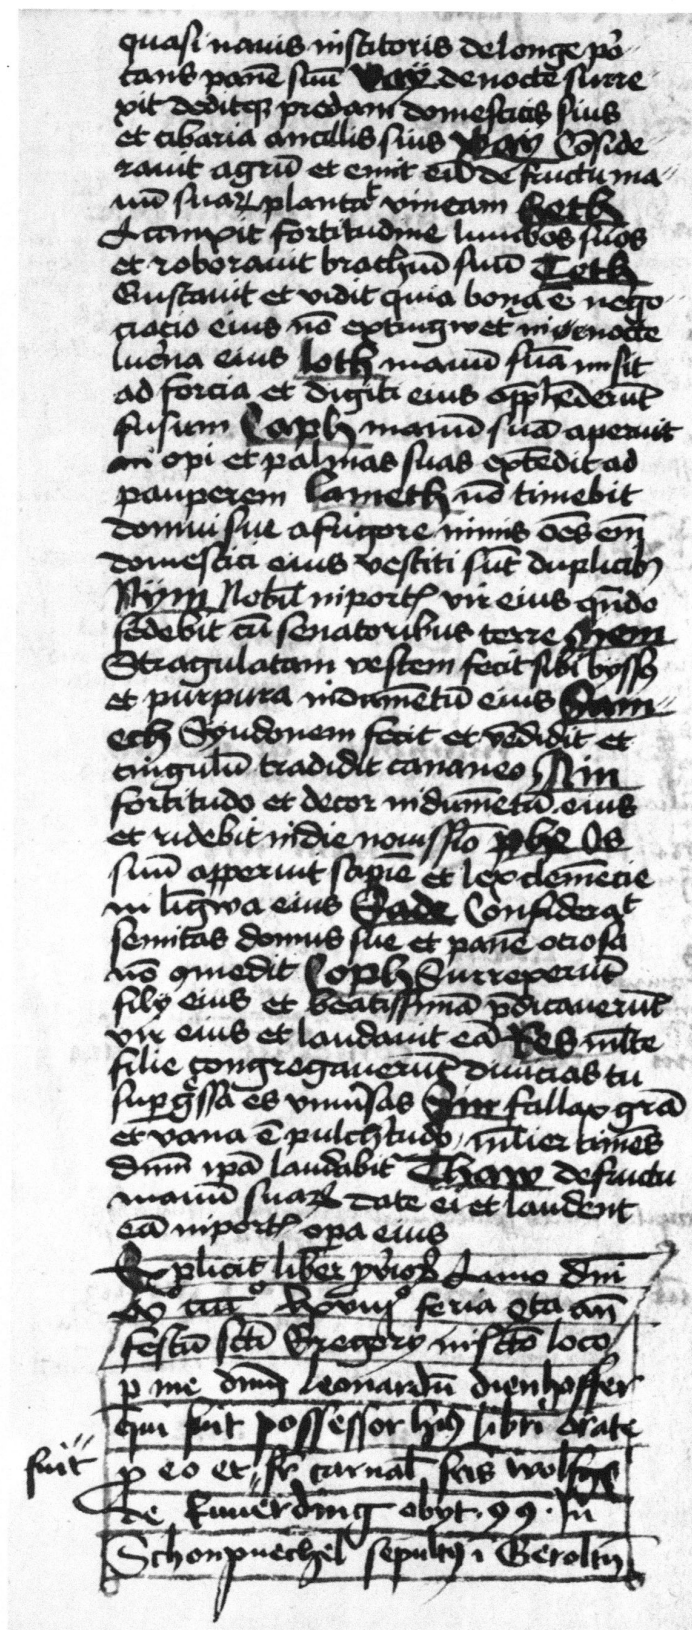 quasi nauis institoris de longe por
tans panē suū Vaÿ de nocte surre
xit deditqȝ predam domesticis suis
et cibaria ancillis suis Zay Cōside
rauit agrū et emit eū de fructu ma
nuū suaꝝ plantat vineam Heth
Accinxit fortitudine lumbos suos
et roborauit brachiū suū Teth
Gustauit et vidit quia bona ē nego
ciacio eius nō extingwet in nocte
lucerna eius Joth manū suā misit
ad forcia et digiti eius apphēderūt
fusum Coph manū suā aperuit
in opi et palmas suas extēdit ad
pauperem Lameth nō timebit
domui sue a frigore niuis oēs eni
domestici eius vestiti sūt duplicibȝ
Nym Nobil in port vir eius qn̄do
sedebit cū senatoribus terre Mem
Stragulatam vestem fecit sibi byssȝ
et purpura indumētū eius Sam
ech Syndonem fecit et vēdidit et
cingulū tradidit cananeo Ain
fortitudo et decor indumētū eius
et ridebit in die nouissīo Phe Os
suū apperuit sapiē et lex clemēcie
in lingwa eius Sade Considerat
semitas domus sue et panē ociosa
nō ꝯmedit Coph Surrexerūt
filij eius et beatissimā p̄dicauerūt
vir eius et laudauit eā Res multe
filie congregauerūt diuicias tu
supgressa es vniūsas Sin fallax grā
et vana ē pulchritudo mulier timēs
dnm ipā laudabit Thaw de fructu
manuū suaꝝ date ei et laudent
eā in port opa eius
Explicit liber Anno dni
feria qta an̄
festū scti Gregory in loco
p me dnm Leonardū dienhaffer
qui fuit possessor huiȝ libri Orate
fuit p eo et fr carnal
de Euuerding obyt · 99 · in
Schonpuechel sepultȝ i Geroltn̄